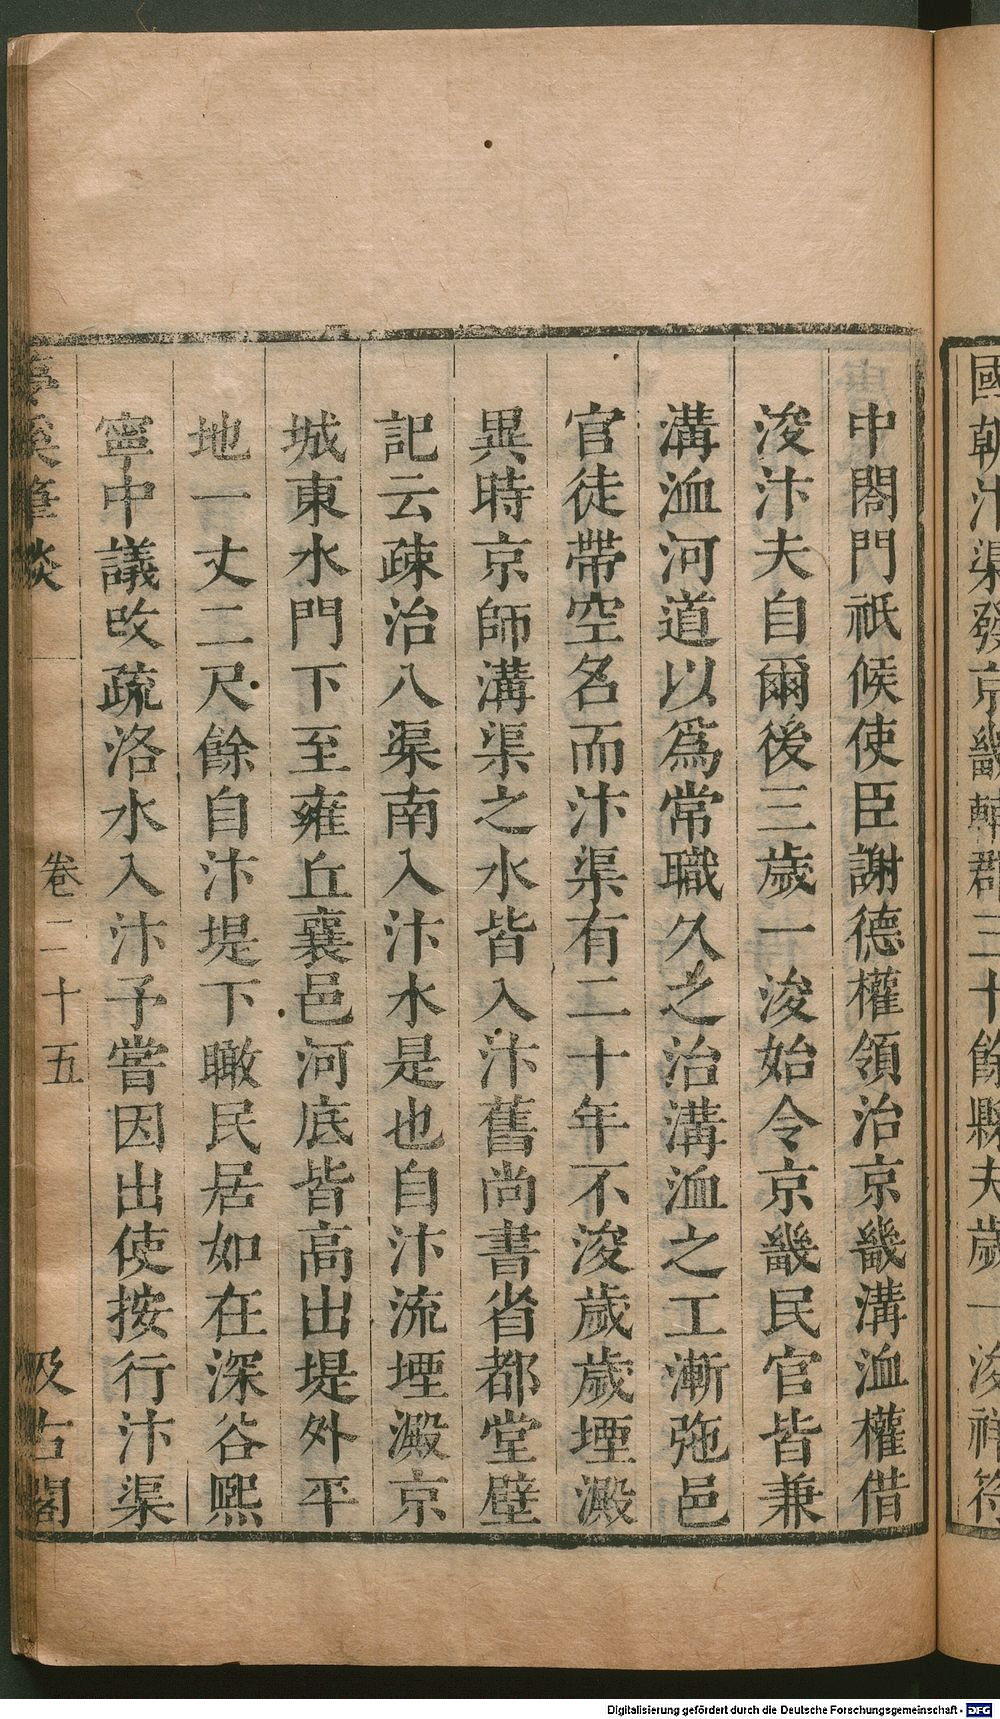 國朝汴渠發京畿輔郡三十餘縣夫歲一浚祥符
中閤門祇候使臣謝德權領治京畿溝洫權借
浚汴夫自爾後三歲一浚始令京畿民官皆兼
溝洫河道以爲常職久之治溝洫之工漸弛邑
官徒帶空名而汴渠有二十年不浚歲歲堙澱
異時京師溝渠之水皆入汴舊尚書省都堂壁
記云疎治八渠南入汴水是也自汴流堙澱京
城東水門下至雍丘襄邑河底皆高出堤外平
地一丈二尺餘自汴堤下瞰民居如在深谷熙
寧中議改疏洛水入汴予嘗因出使按行汴渠
夢溪筆談
卷二十五
汲古閣
Digitalisierung gefördert durch die Deutsche Forschungsgemeinschaft - DFG